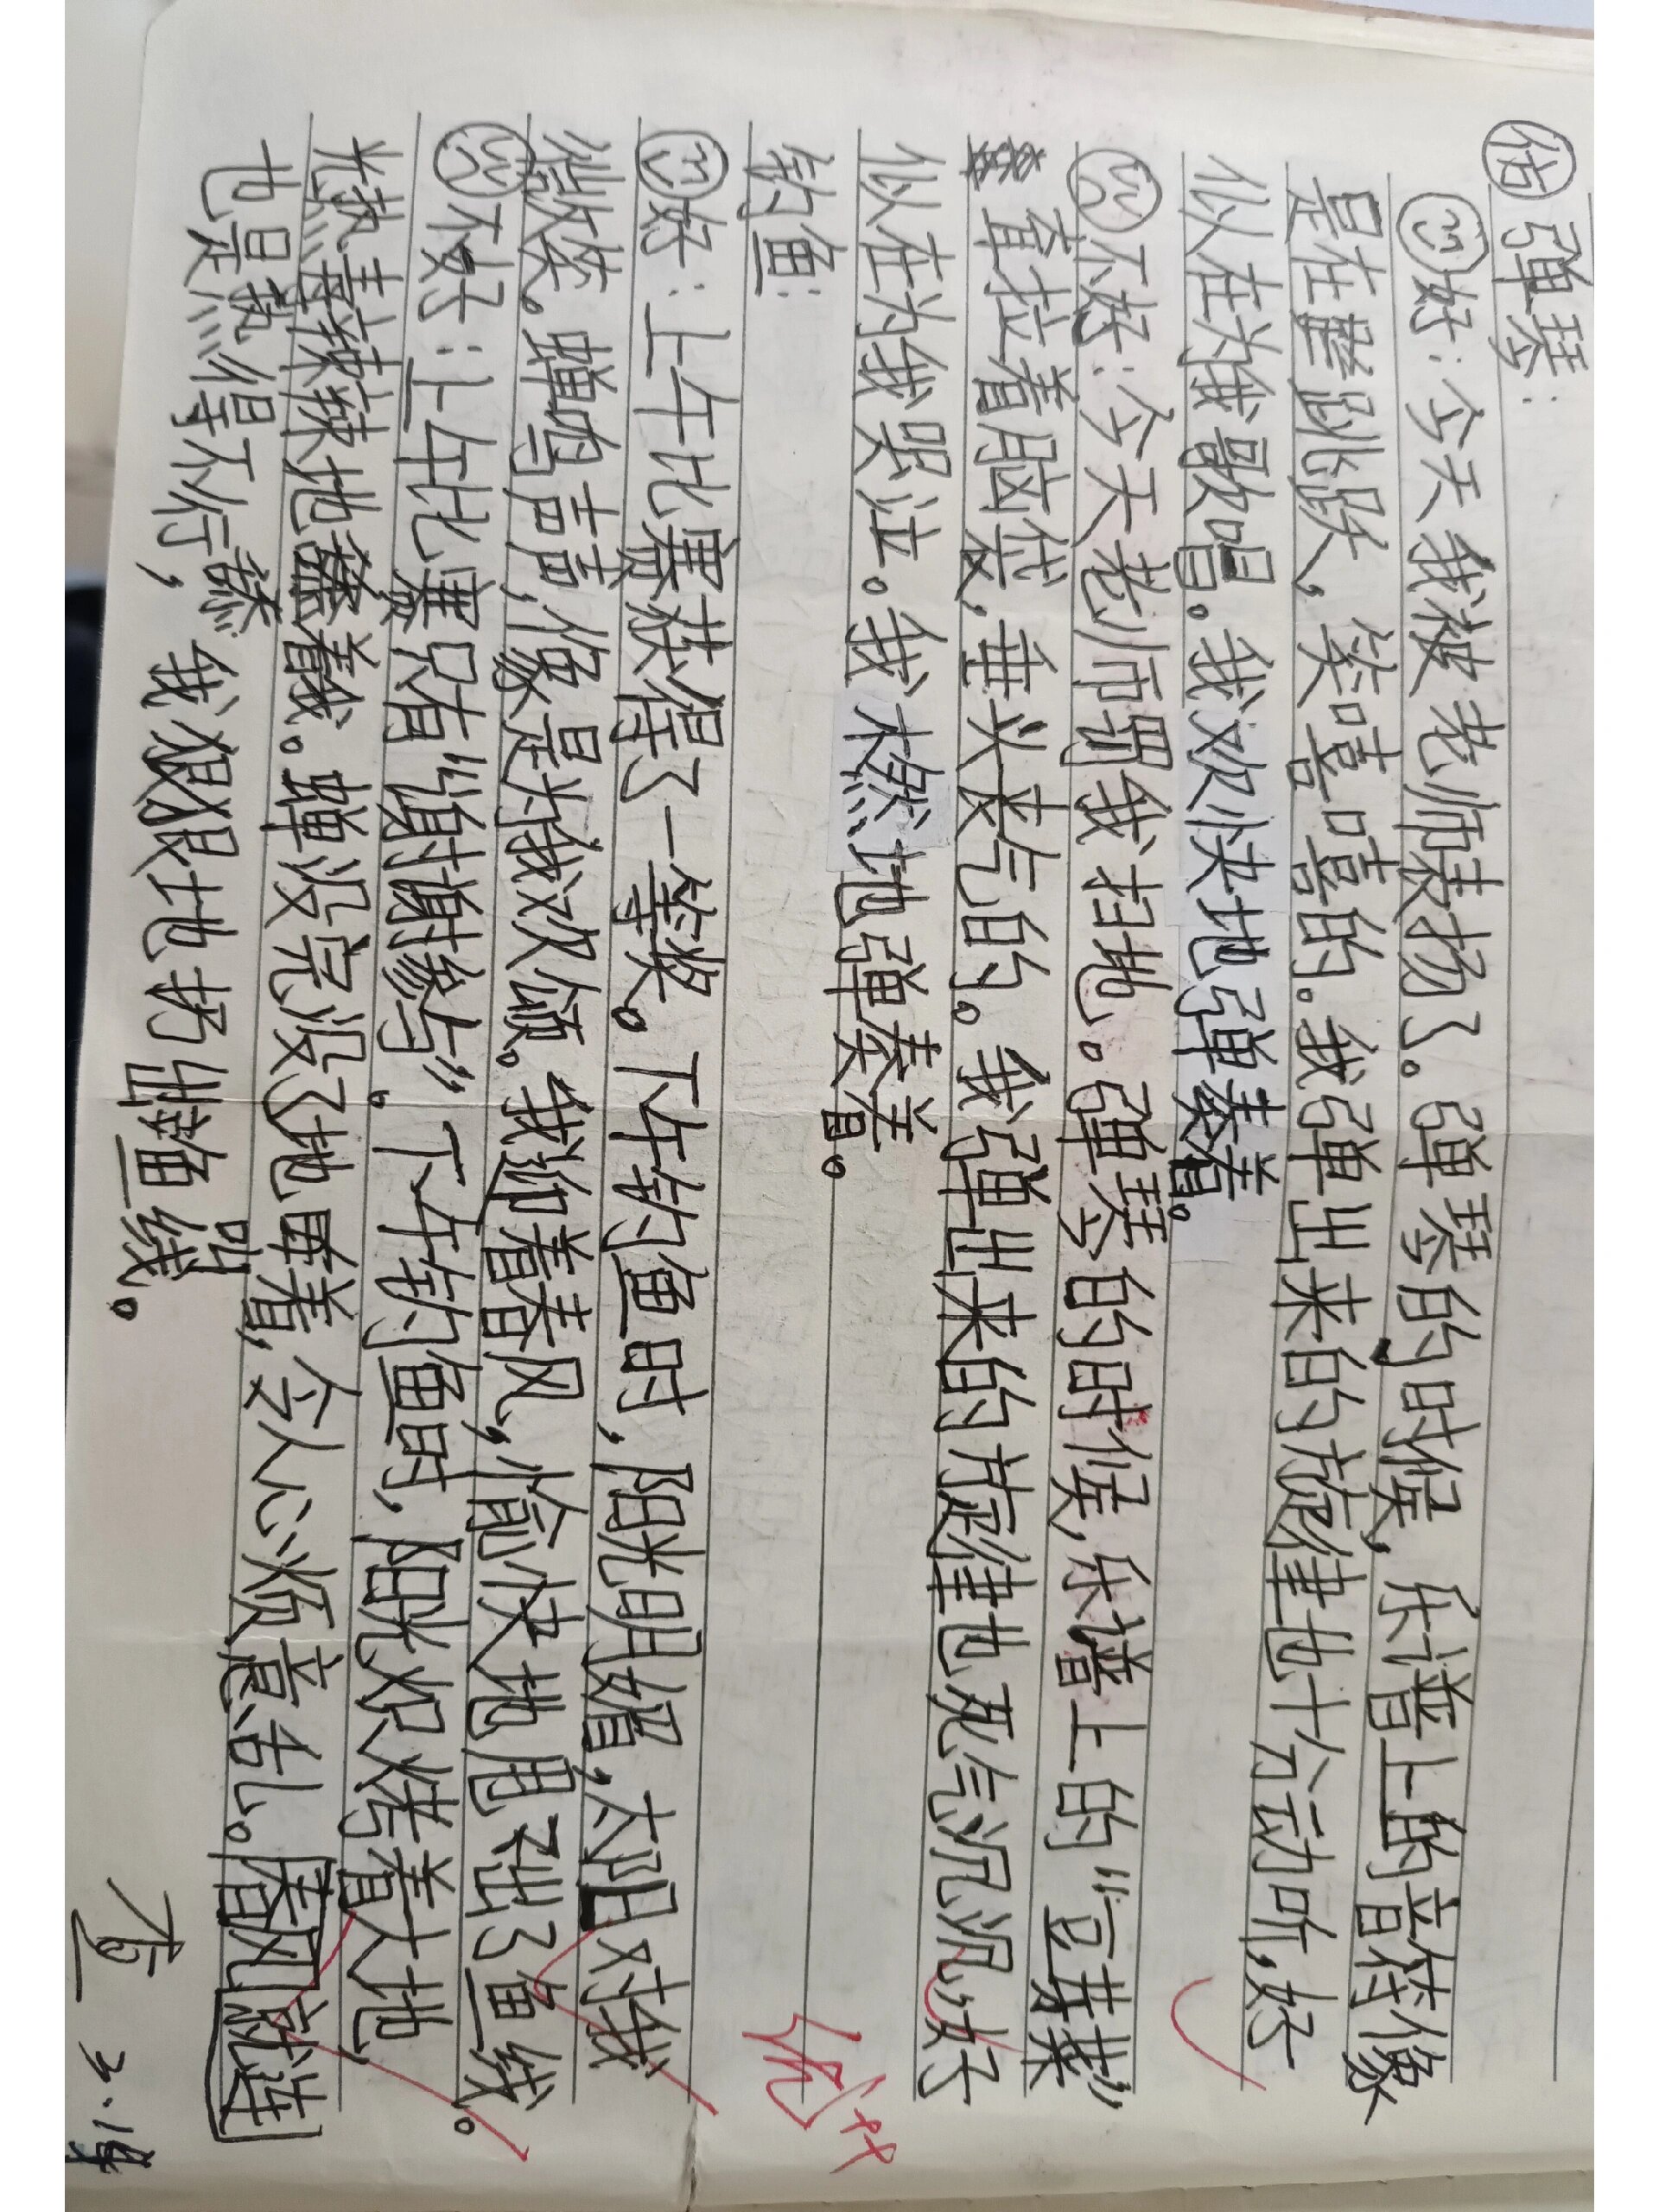 仿 弹琴：
好：今天我被老师表扬了。弹琴的时候，乐谱上的音符像
是在蹦跳跃，笑嘻嘻的。我弹出来的旋律也十分动听，好
似在为我歌唱。我欢快地弹奏着。
不好：今天老师罚我扫地。弹琴的时候，乐谱上的“豆芽菜”
直拉着脑袋，垂头丧气的。我弹出来的旋律也死气沉沉，好
似在为我哭泣。我木然地弹奏着。
钓鱼：
好：上午比赛获得了一等奖。下午钓鱼时，阳光明媚，太阳对我
微笑。蝉鸣声声，像是为我欢颂。我迎着春风，愉快地甩出了鱼线。
不好：上午比赛只有“谢谢参与”。下午钓鱼时，阳光炽烤着大地，
火热毒辣辣地盯着我。蝉没完没了地叫着，令人心烦意乱。春风就连
也是热得不行，我狠狠地扔出鱼线。
优++
查
3.19